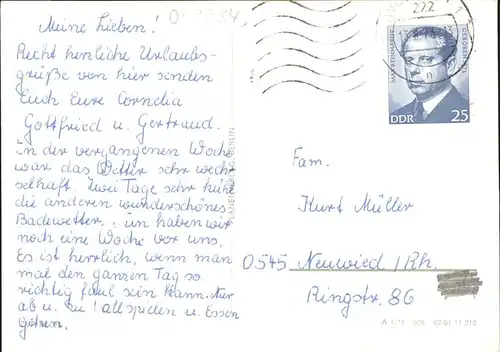 Meine Lieben!
Recht herzliche Urlaubs-
grüße von hier senden
Euch Eure Cornelia
Gottfried u. Gertraud.
In der vergangenen Woche
war das Wetter sehr wech-
selhaft. Zwei Tage sehr kühl
die anderen wunderschönes
Badewetter. Nun haben wir
noch eine Woche vor uns.
Es ist herrlich, wenn man
mal den ganzen Tag so
richtig faul sein kann. Nur
ab u. zu Ballspielen u. Essen
gehen.
222
MAX REINHARDT
GEBOREN 1873
DDR 25
PLANET-VERLAG BERLIN
Fam.
Kurt Müller
0.545 Neuwied / Rh.
Ringstr. 86